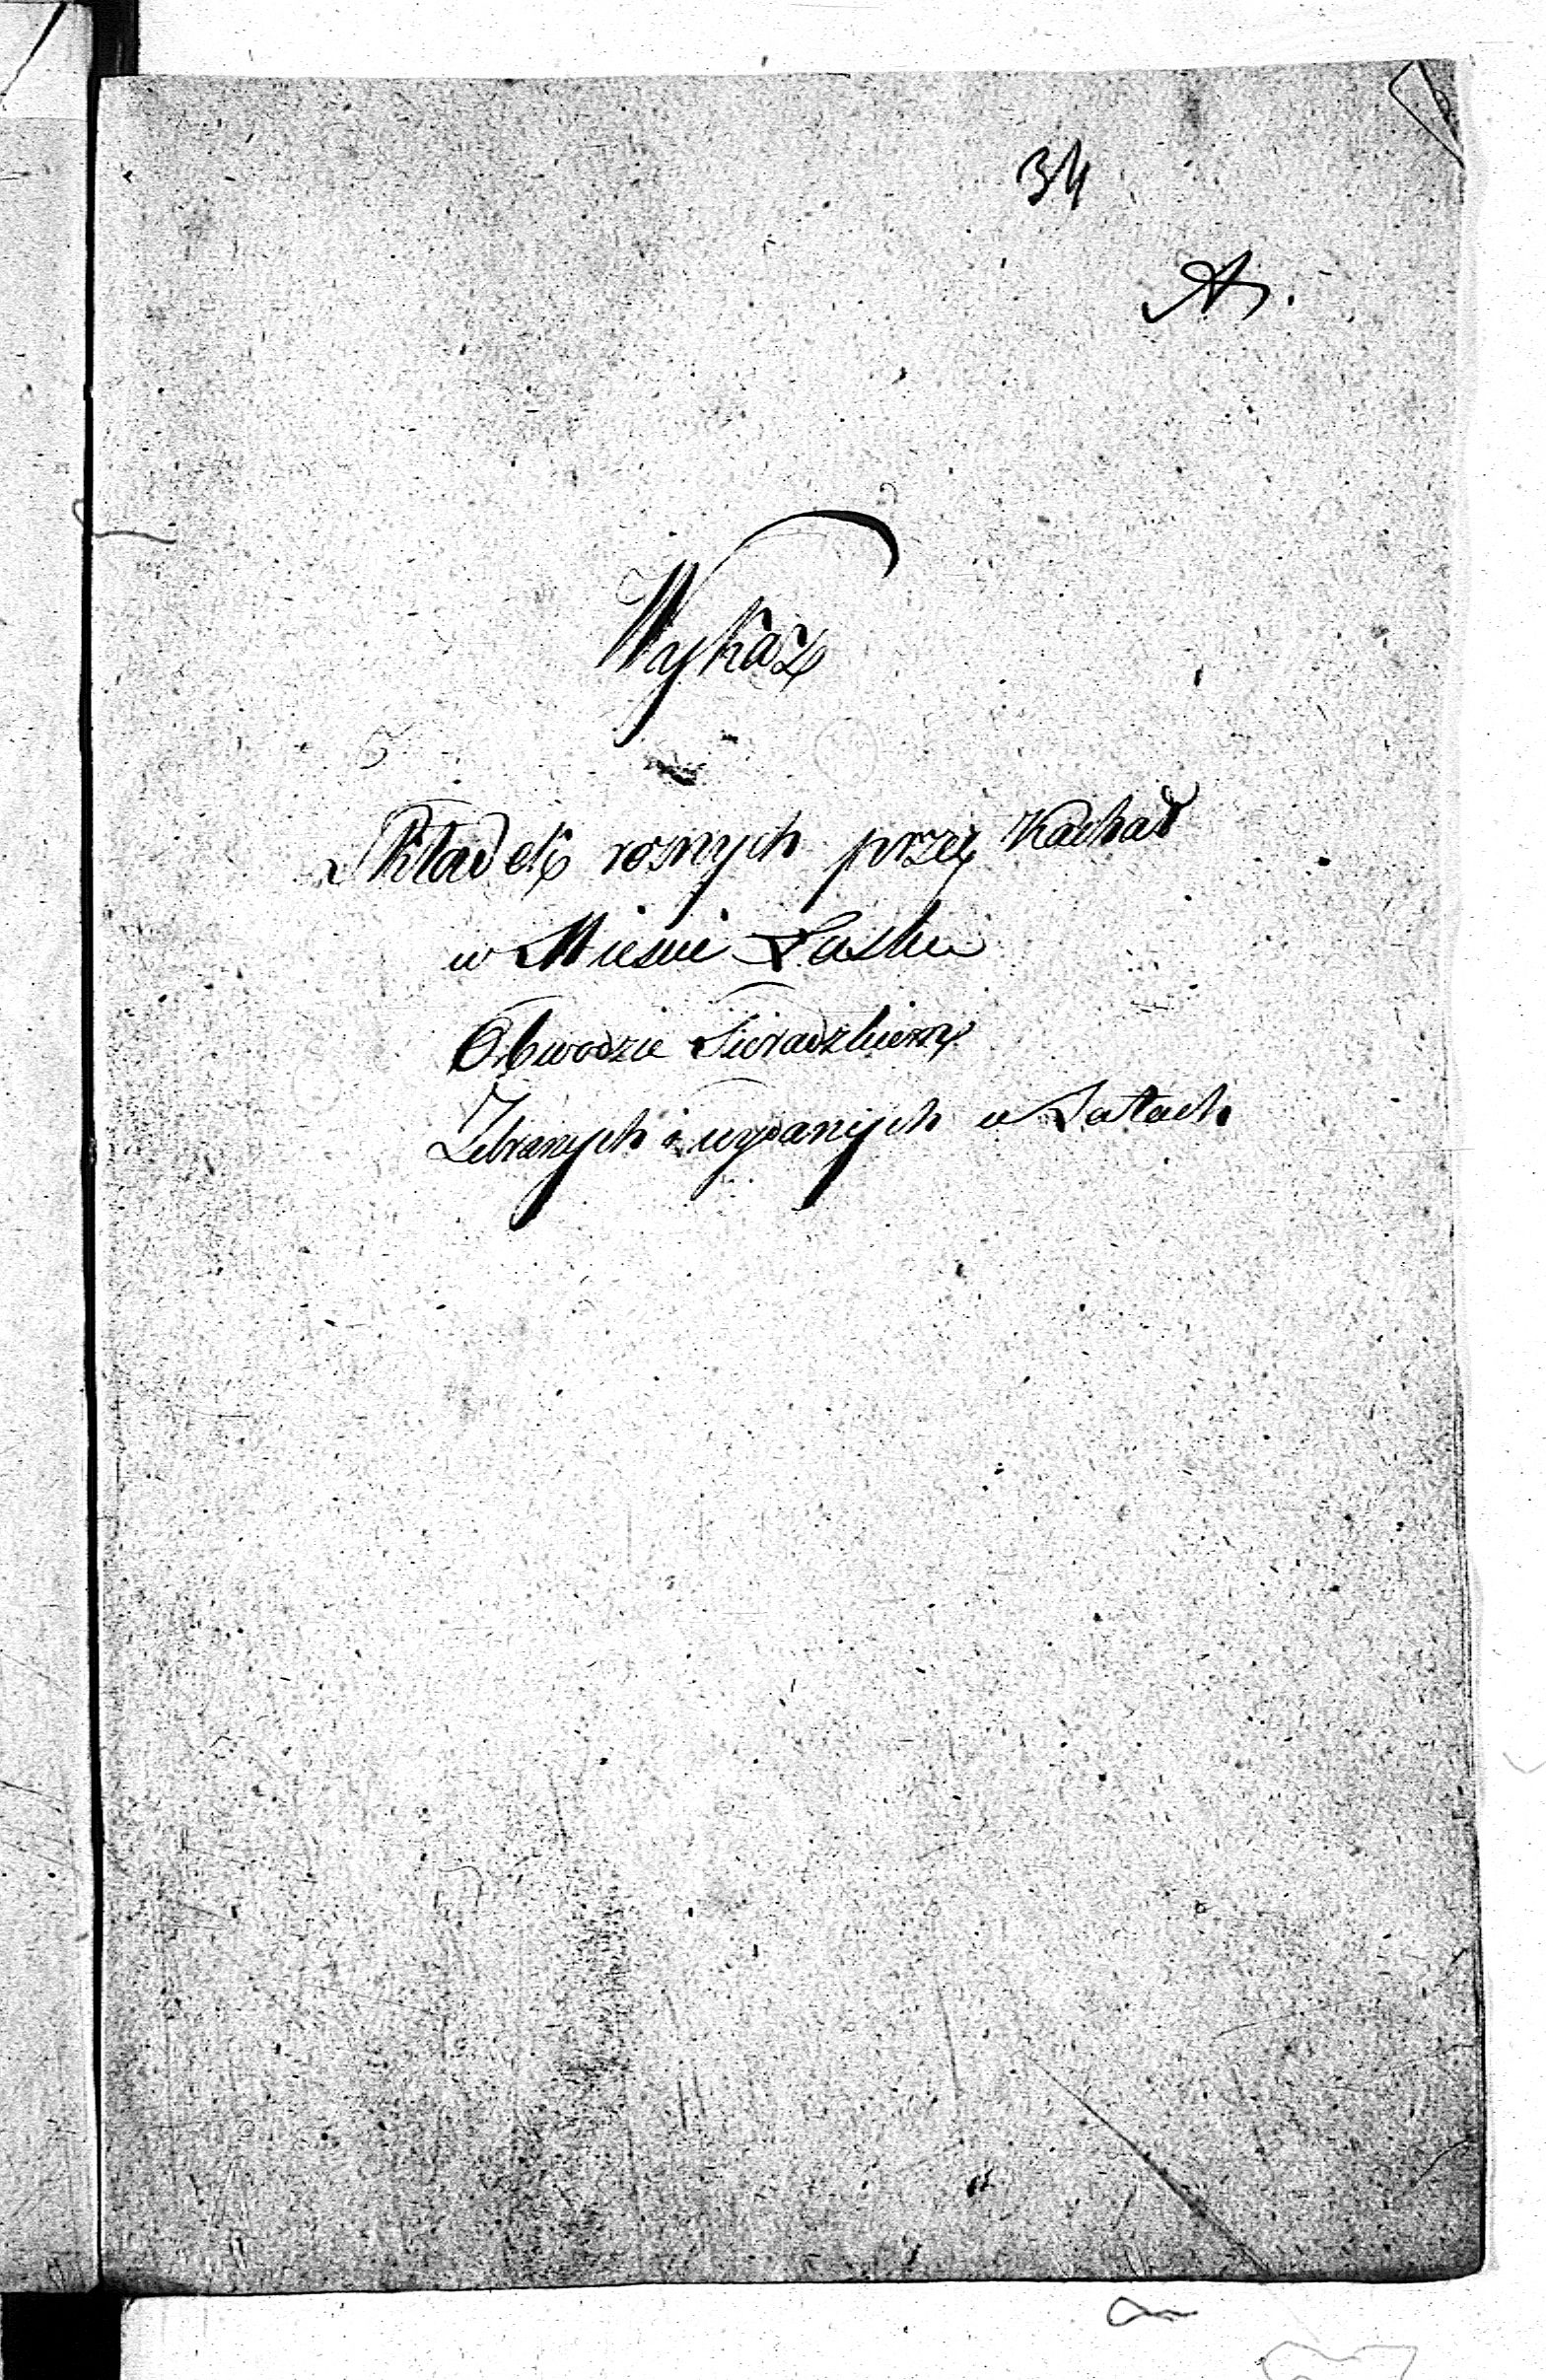 34
A.
Wykaz
Składek rosnych przez Kachał
w Miescie Łasku
Obwodzie Sieradzkiem
Zebranych i wydanych w Latach